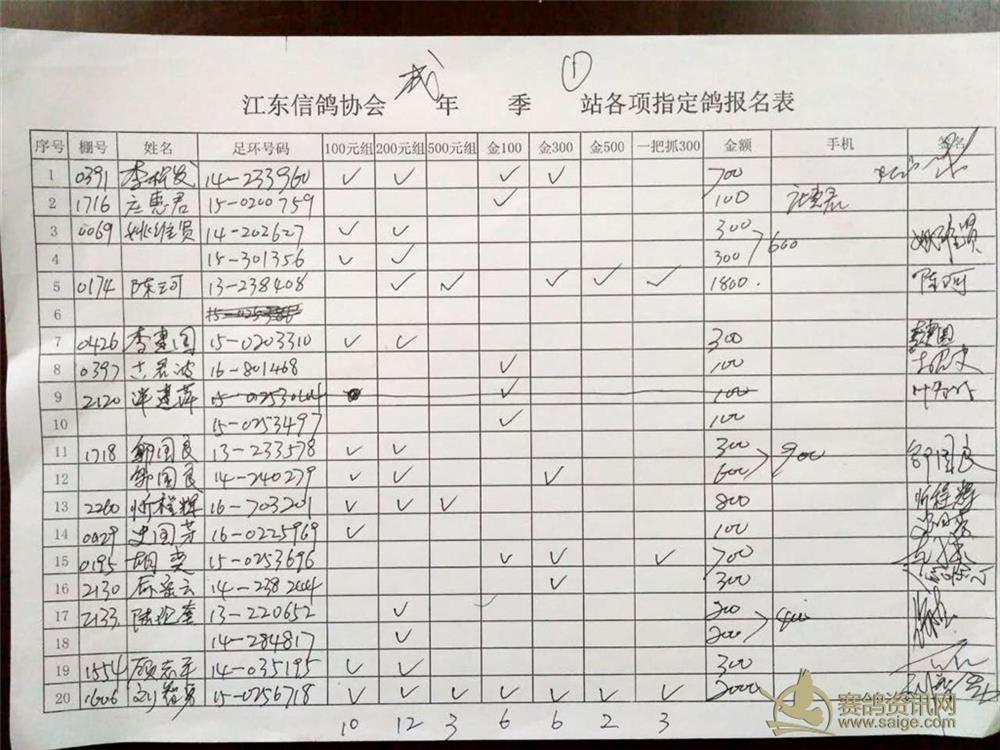 ①
江东信鸽协会 年 季 站各项指定鸽报名表
序号 棚号 姓名 足环号码 100元组 200元组 500元组 金100 金300 金500 一把抓300 金额 手机 签名
1 0391 14-233960 ✓ ✓ ✓ ✓ 700
2 1716 应惠君 15-0200759 ✓ 100
3 0069 姚维贤 14-202627 ✓ ✓ 300 姚维贤
4 15-301356 ✓ ✓ 300 > 600
5 0174 陈珂 13-238408 ✓ ✓ ✓ ✓ ✓ 1800. 陈珂
6
7 0426 李惠国 15-0203310 ✓ ✓ 300
8 0397 16-801468 ✓ 100
9 2120 ✓ 100
10 15-0253497 ✓ 100
11 1718 郭国良 13-233578 ✓ ✓ 300 > 900
12 郭国良 14-240279 ✓ ✓ ✓ 600
13 2260 忻程辉 16-703201 ✓ ✓ ✓ 800 忻程辉
14 0029 史国芳 16-0225969 ✓ 100
15 0195 胡奕 15-0253696 ✓ ✓ ✓ 700
16 2130 14-238244 ✓ 300
17 2133 13-220652 ✓ 200 > 400
18 14-284817 ✓ 200
19 1554 顾志平 14-035195 ✓ ✓ 300
20 1606 15-0256718 ✓ ✓ ✓ ✓ ✓ ✓ ✓ 2000
10 12 3 6 6 2 3
赛鸽资讯网
www.saige.com